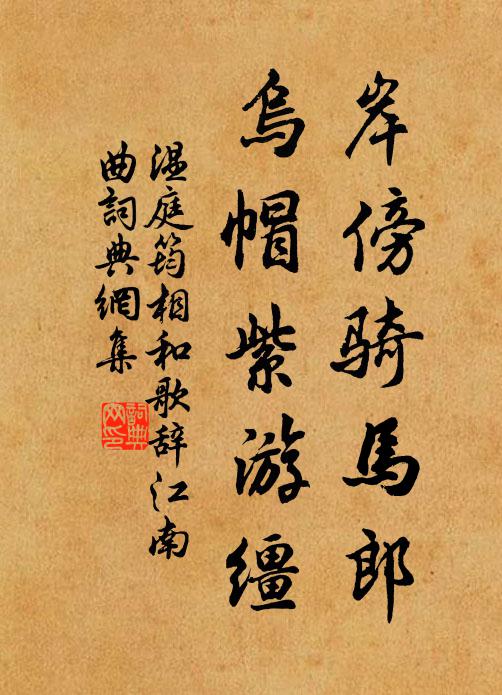 岸傍骑馬郎
烏帽紫游缰
温庭筠相和歌辞江南
曲詞典網集
詞典网印